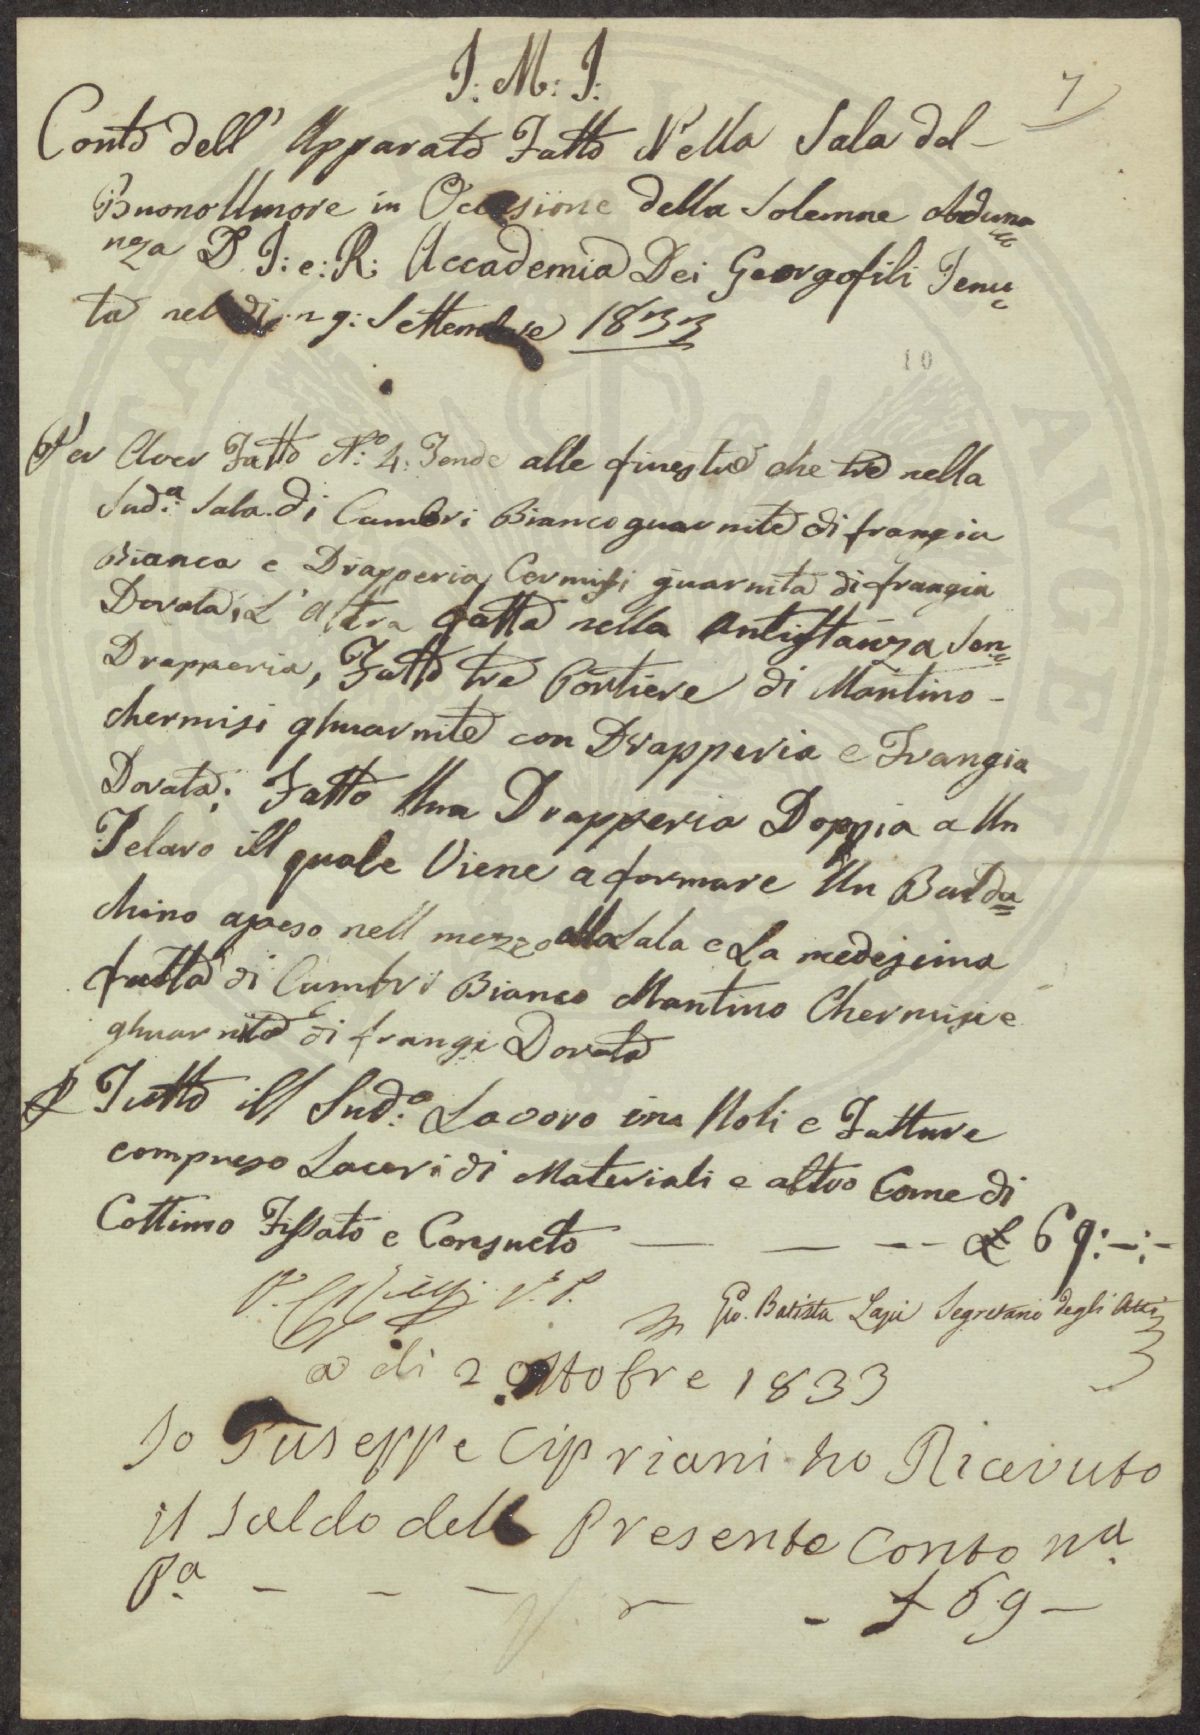 J: M: J:
7
Conto dell' Apparato Fatto Nella Sala del
BuonoUmore in Occasione della Solenne Aduna=
nza D. J: e: R: Accademia Dei Georgofili Tenu=
ta nel di 29: Settembre 1833
10
Per Aver Fatto N.o 4: Tende alle finestre che tre nella
Sud.a Sala di Cambri Bianco guarnite di frangia
Bianca e Drapperia Cermisi guarnita di frangia
Dorata, L'altra fatta nella Antistanza Sen=
Drapperia, Fatto tre Portiere di Mantino
chermisi ghuarnite con Drapperia e Frangia
Dorata; Fatto Una Drapperia Doppia a Un
Telaro ill quale Viene a formare Un Balda=
chino apeso nell mezzo alla Sala e La medesima
fatta di Cambri Bianco Mantino Chermisi e
ghuarnita di frangi Dorata
Tutto ill Sud.o Lavoro in Noli e Fatture
compreso Laceri di Materiali e altro Come di
Cottimo Fissato e Consueto — — — £ 69:—:—
V. P.
Gio. Batista Lapi Segretario degli Atti
a di 2 ottobre 1833
Io Giuseppe Cipriani ho Ricevuto
il Saldo dell Presente Conto n.a
P.a — — — — £ 69 —